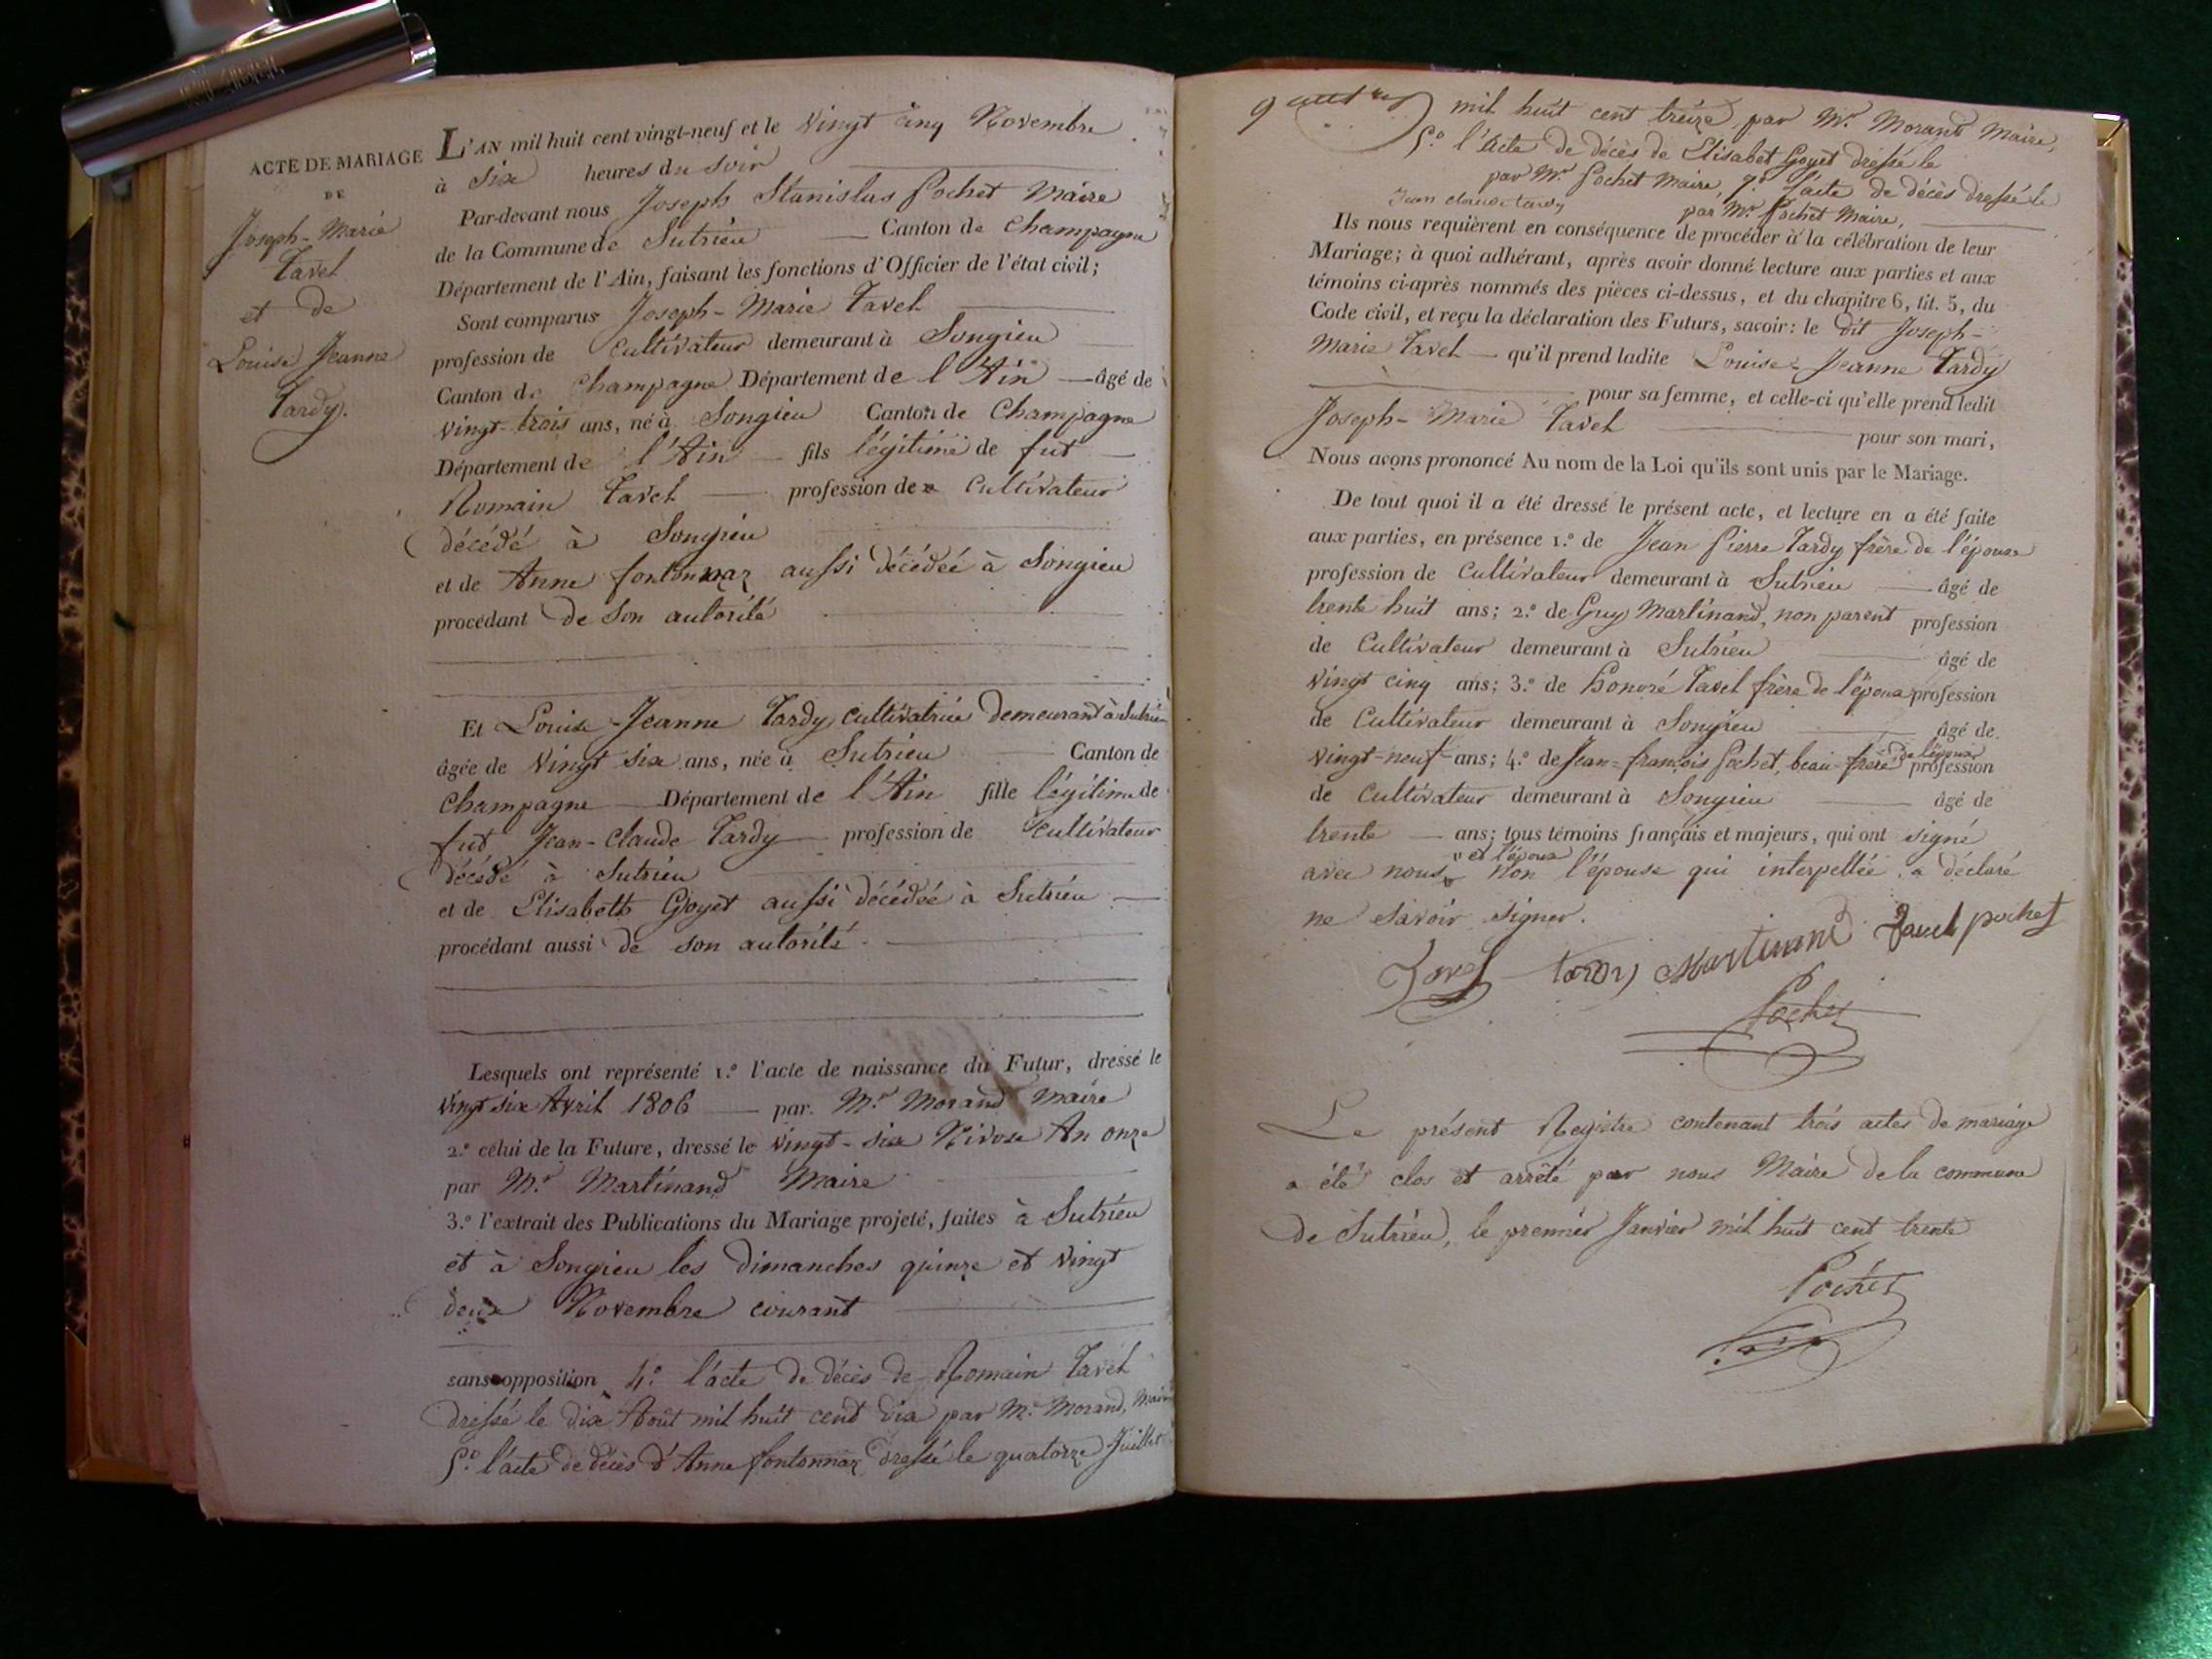 ACTE DE MARIAGE
DE
Joseph-Marie
Tavel
et de
Louise Jeanne
Tardy.
L'AN mil huit cent vingt-neuf et le vingt cinq Novembre
à six heures du soir
Par-devant nous Joseph Stanislas Pochet Maire
de la Commune de Sutrieu Canton de Champagne
Département de l'Ain, faisant les fonctions d'Officier de l'état civil;
Sont comparus Joseph-Marie Tavel
profession de Cultivateur demeurant à Songieu
Canton de Champagne Département de l'Ain âgé de
vingt-trois ans, né à Songieu Canton de Champagne
Département de l'Ain fils légitime de fut
Romain Tavel profession de Cultivateur
décédé à Songieu
et de Anne fontonnaz aussi décédée à Songieu
procédant de son autorité
Et Louise Jeanne Tardy cultivatrice demeurant à Sutrieu
âgée de vingt six ans, née à Sutrieu Canton de
Champagne Département de l'Ain fille légitime de
fut Jean-Claude Tardy profession de Cultivateur
décédé à Sutrieu
et de Elisabeth Goyet aussi décédée à Sutrieu
procédant aussi de son autorité.
Lesquels ont représenté 1.º l'acte de naissance du Futur, dressé le
vingt six Avril 1806 par Mr Morand Maire
2.º celui de la Future, dressé le vingt-six Nivose An onze
par Mr. Martinand Maire
3.º l'extrait des Publications du Mariage projeté, faites à Sutrieu
et à Songieu les dimanches quinze et vingt
deux Novembre courant
sans opposition 4.º l'acte de décès de Romain Tavel
dressé le dix Août mil huit cent dix par Mr. Morand, Maire
5.º l'acte de décès d'Anne fontonnaz dressé le quatorze Juillet
mil huit cent treize par Mr. Morand Maire,
l'Acte de décès de Elisabet Goyet dressé le
par Mr. Pochet Maire, 7.º l'acte de décès dressé le
Jean claude tardy par Mr. Pochet Maire,
Ils nous requièrent en conséquence de procéder à la célébration de leur
Mariage; à quoi adhérant, après avoir donné lecture aux parties et aux
témoins ci-après nommés des pièces ci-dessus, et du chapitre 6, tit. 5, du
Code civil, et reçu la déclaration des Futurs, savoir: le dit Joseph-
Marie Tavel qu'il prend ladite Louise-Jeanne Tardy
pour sa femme, et celle-ci qu'elle prend ledit
Joseph-Marie Tavel pour son mari,
Nous avons prononcé Au nom de la Loi qu'ils sont unis par le Mariage.
De tout quoi il a été dressé le présent acte, et lecture en a été faite
aux parties, en présence 1.º de Jean Pierre Tardy frère de l'épouse
profession de Cultivateur demeurant à Sutrieu âgé de
trente huit ans; 2.º de Guy Martinand, non parent profession
de Cultivateur demeurant à Sutrieu âgé de
vingt cinq ans; 3.º de Honoré Tavel frère de l'époux profession
de Cultivateur demeurant à Songieu âgé de
vingt-neuf ans; 4.º de Jean-françois Pochet, beau-frère de l'époux profession
de Cultivateur demeurant à Songieu âgé de
trente ans; tous témoins français et majeurs, qui ont signé
avec nous et l'époux non l'épouse qui interpellée a déclaré
ne savoir signer.
Tavel tardy Martinand Tavel pochet
Pochet
Le présent Registre contenant trois actes de mariage
a été clos et arrêté par nous Maire de la commune
de Sutrieu, le premier Janvier mil huit cent trente
Pochet